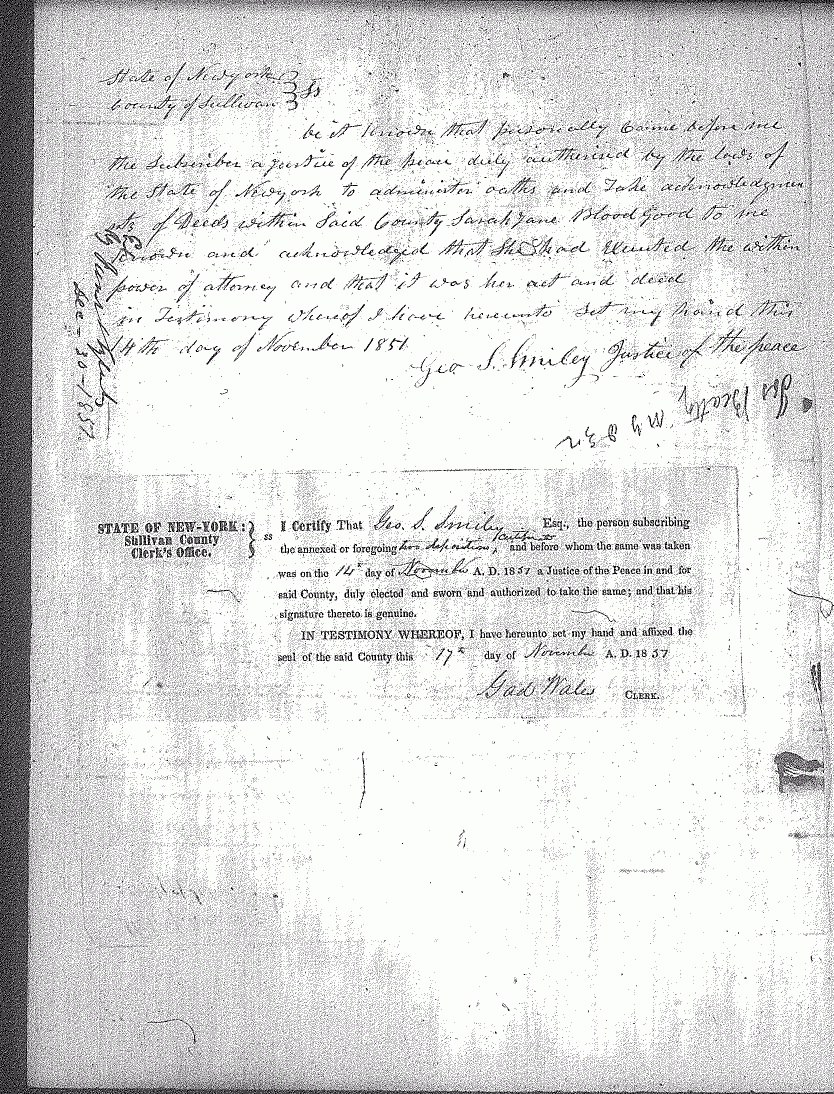 State of Newyork } ss
County of Sullivan
be it known that personally Came before me
the Subscriber a justice of the peace duly authorised by the laws of
the State of Newyork to administer oaths and Take acknowledgmen
ts of Deeds within Said County Sarah Jane Blood Good to me
Known and acknowledged that She had Executed the within
power of attorney and that it was her act and deed
in Testimony whereof I have hereunto Set my hand this
14th day of November 1851
Geo S. Smiley Justice of the peace
Dec - 30 - 1851.
Jos Beatty
STATE OF NEW-YORK: } ss
Sullivan County
Clerk's Office.
I Certify That Geo. S. Smiley Esq., the person subscribing
the annexed or foregoing two depositions, and before whom the same was taken
was on the 14th day of November A. D. 1851 a Justice of the Peace in and for
said County, duly elected and sworn and authorized to take the same; and that his
signature thereto is genuine.
IN TESTIMONY WHEREOF, I have hereunto set my hand and affixed the
seal of the said County this 17th day of November A. D. 1851
Gad Wales CLERK.